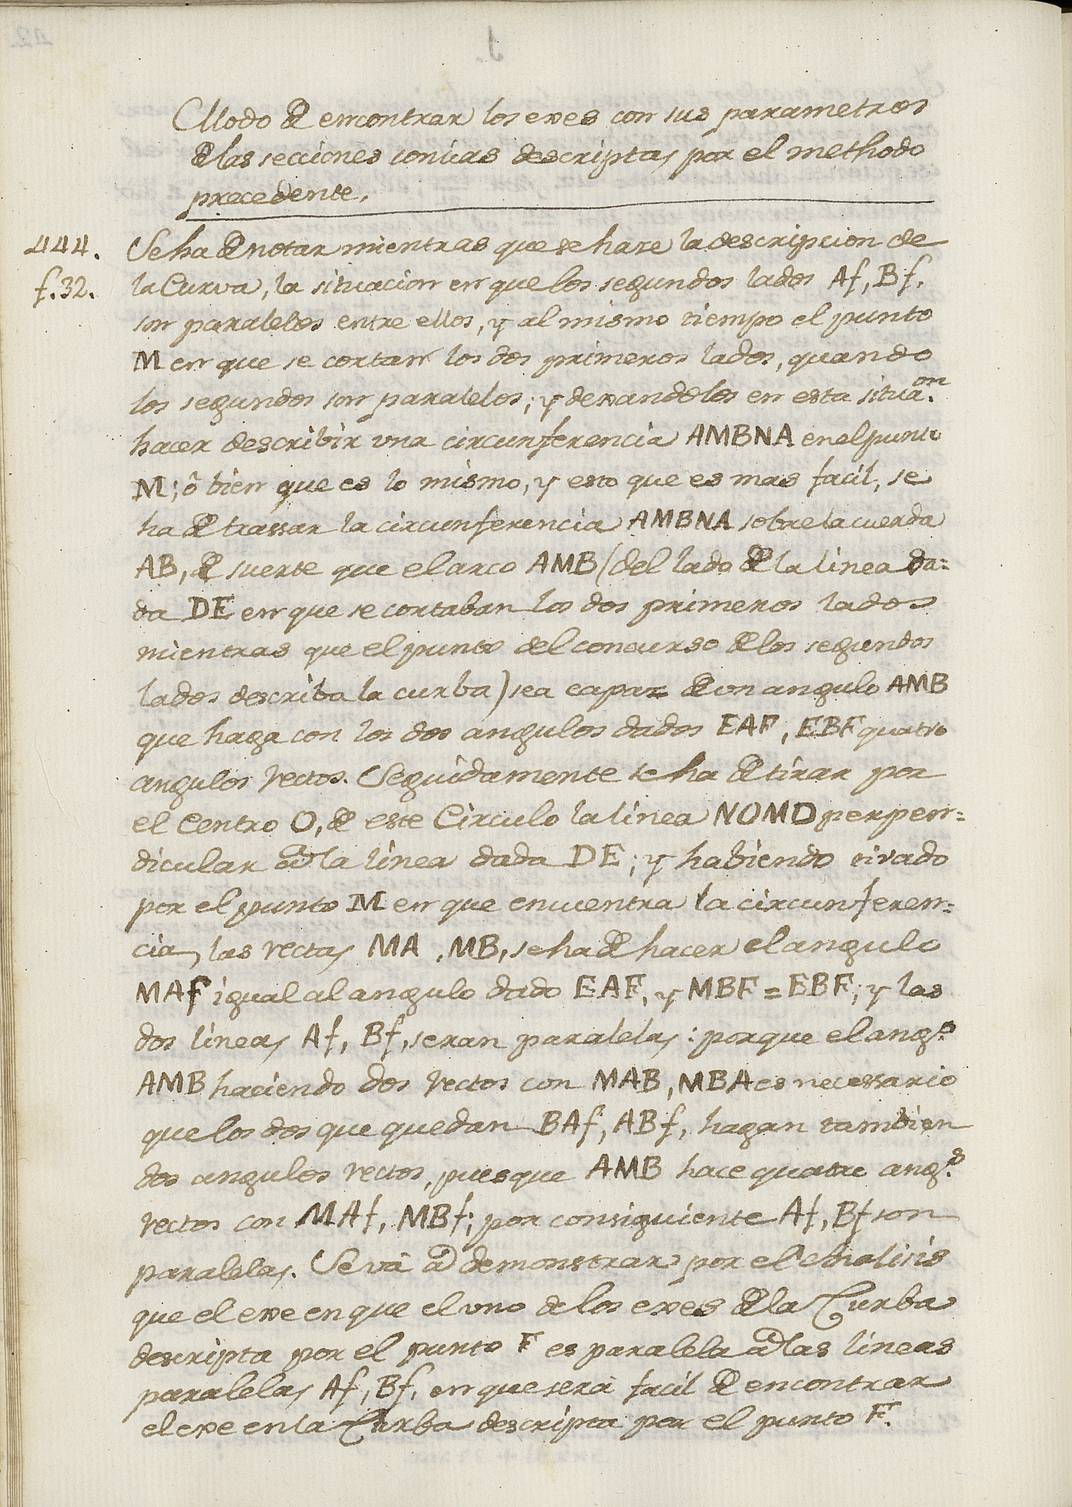 Modo de encontrar los exes con sus parametros
de las secciones conicas descriptas por el methodo
precedente.
444.
f.32.
Se ha de notar mientras que se hace la descripcion de
la Curva, la situacion en que los segundos lados Af, Bf,
son paralelos entre ellos, y al mismo tiempo el punto
M en que se cortan los dos primeros lados, quando
los segundos son paralelos; y dexandolos en esta situa.on
hacer describir una circunferencia AMBNA en el punto
M; ô bien que es lo mismo, y esto que es mas facil, se
ha de trassar la circunferencia AMBNA sobre la cuerda
AB, de suerte que el arco AMB (del lado de la linea da=
da DE en que se cortaban los dos primeros lados
mientras que el punto del concurso de los segundos
lados describa la curba) sea capaz de un angulo AMB
que haga con los dos angulos dados EAF, EBF quatro
angulos rectos. Seguidamente se ha de tirar por
el Centro O, de este Circulo la linea NOMD perpen=
dicular a la linea dada DE; y habiendo tirado
por el punto M en que encuentra la circunferen=
cia, las rectas MA, MB, se ha de hacer el angulo
MAF igual al angulo dado EAF, y MBF = EBF; y las
dos lineas Af, Bf, seran paralelas: porque el ang.o
AMB haciendo dos rectos con MAB, MBA es necessario
que los dos que quedan BAf, ABf, hagan tambien
dos angulos rectos, puesque AMB hace quatre ang.s
rectos con MAf, MBf; por consiguiente Af, Bf son
paralelas. Se vâ a demonstrar por el Analisis
que el exe en que el uno de los exes de la Curba
descripta por el punto F es paralela a las lineas
paralelas Af, Bf, en que serâ facil de encontrar
el exe en la Curba descripta por el punto F.